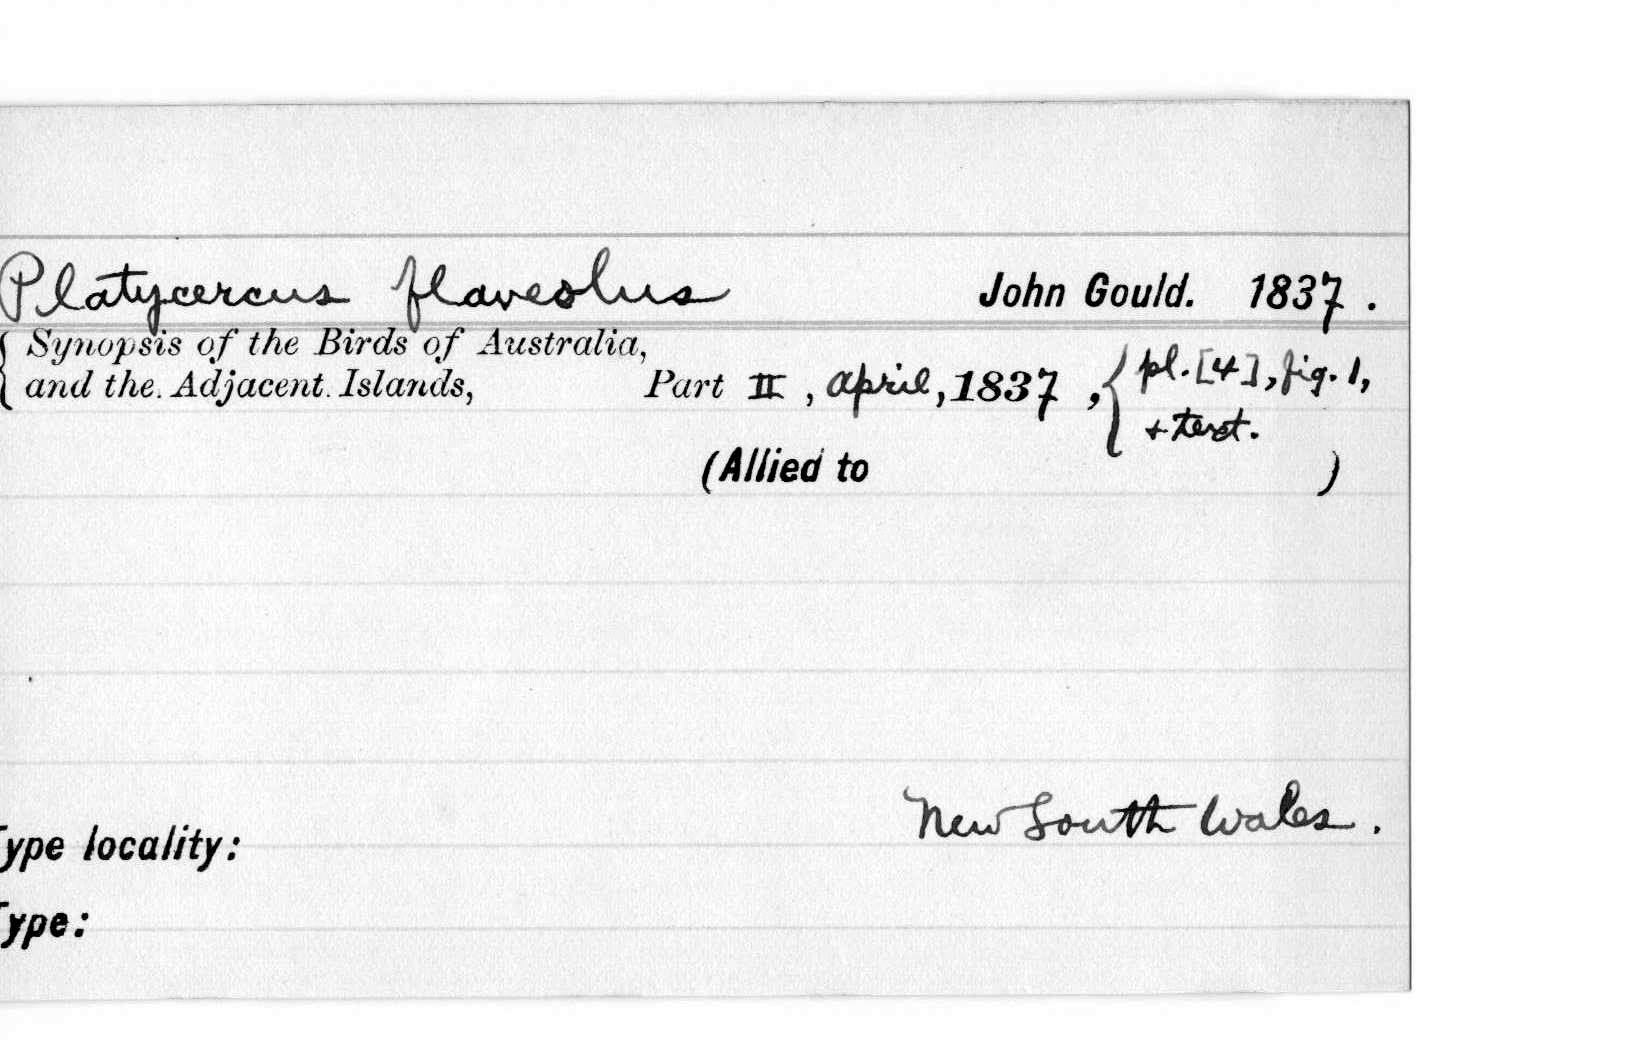 Platycercus flaveolus John Gould. 1837.
Synopsis of the Birds of Australia,
and the Adjacent Islands, Part II, April, 1837, pl. [4], fig. 1,
+ text.
(Allied to )
New South Wales.
Type locality:
Type: